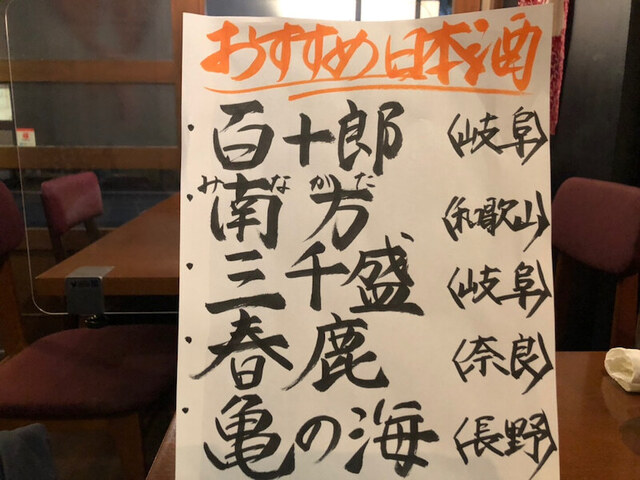 おすすめ日本酒
・百十郎〈岐阜〉
みながた
・南方〈和歌山〉
・三千盛〈岐阜〉
・春鹿〈奈良〉
・亀の海〈長野〉